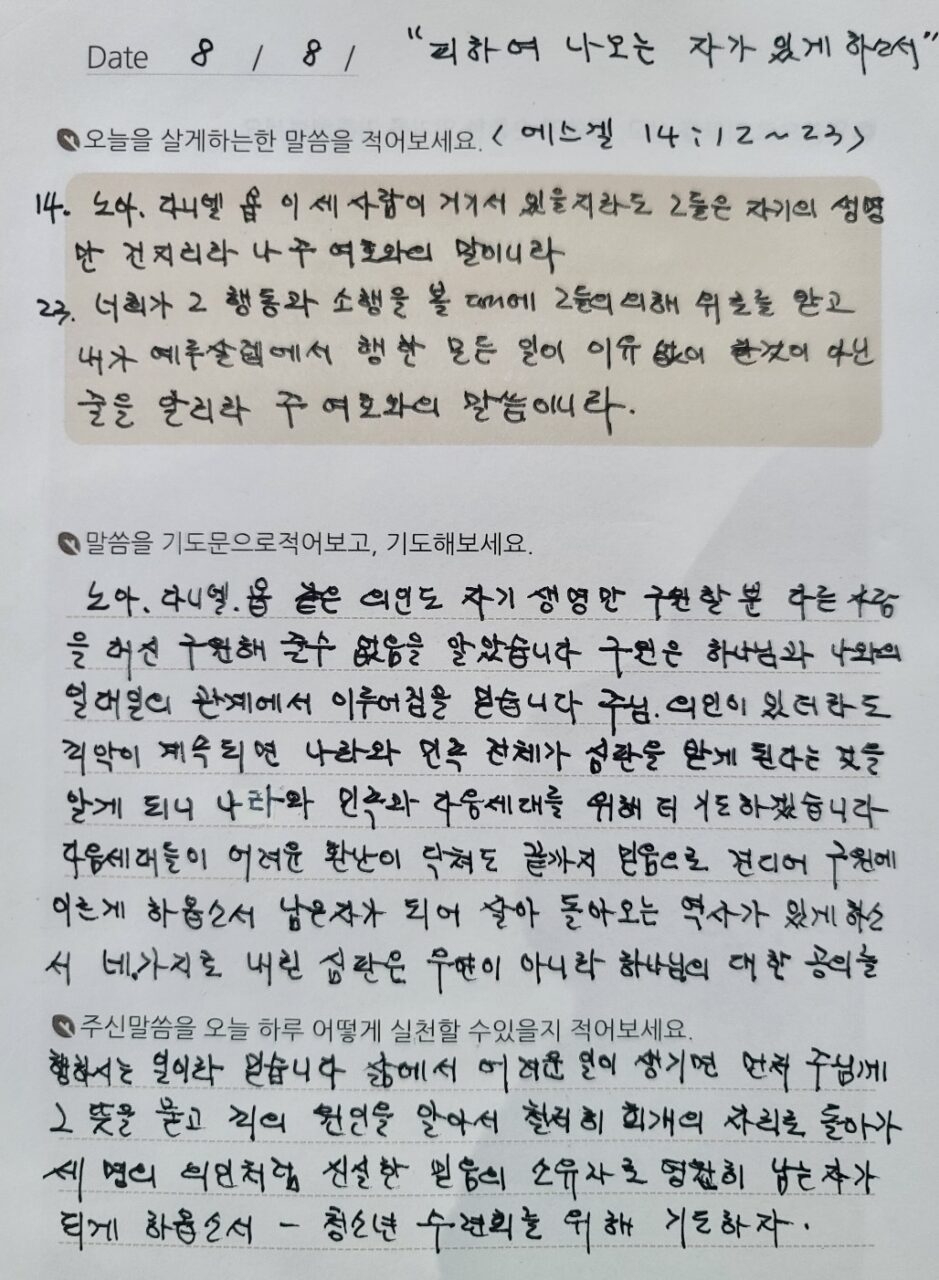 Date 8 / 8 / "피하여 나오는 자가 있게 하소서"
오늘을 살게하는한 말씀을 적어보세요. <에스겔 14:12~23>
14. 노아. 다니엘 욥 이 세 사람이 거기서 있을지라도 그들은 자기의 생명
만 건지리라 나 주 여호와의 말이니라
23. 너희가 그 행동과 소행을 볼 때에 그들의 의해 위로를 받고
내가 예루살렘에서 행한 모든 일이 이유 없이 한것이 아닌
줄을 알리라 주 여호와의 말씀이니라.
말씀을 기도문으로적어보고, 기도해보세요.
노아. 다니엘. 욥 같은 의인도 자기 생명만 구원할 뿐 다른 사람
을 해전 구원해 줄수 없음을 알았습니다 구원은 하나님과 나와의
일대일의 관계에서 이루어짐을 믿습니다 주님. 의인이 있더라도
죄악이 계속되면 나라와 민족 전체가 심판을 받게 된다는 것을
알게 되니 나라와 민족과 다음세대를 위해 더 기도하겠습니다
다음세대들이 어려운 환난이 닥쳐도 끝까지 믿음으로 견디어 구원에
이르게 하옵소서 남은자가 되어 살아 돌아오는 역사가 있게 하소
서 네.가지로 내린 심판은 우연이 아니라 하나님의 대한 공의를
주신말씀을 오늘 하루 어떻게 실천할 수있을지 적어보세요.
행하시는 일이라 믿습니다 삶에서 어려운 일이 생기면 먼저 주님께
그 뜻을 묻고 죄의 원인을 알아서 철저히 회개의 자리로 돌아가
세 명의 의인처럼 진실한 믿음의 소유자로 영원히 남는자가
되게 하옵소서 - 청소년 수련회를 위해 기도하자.